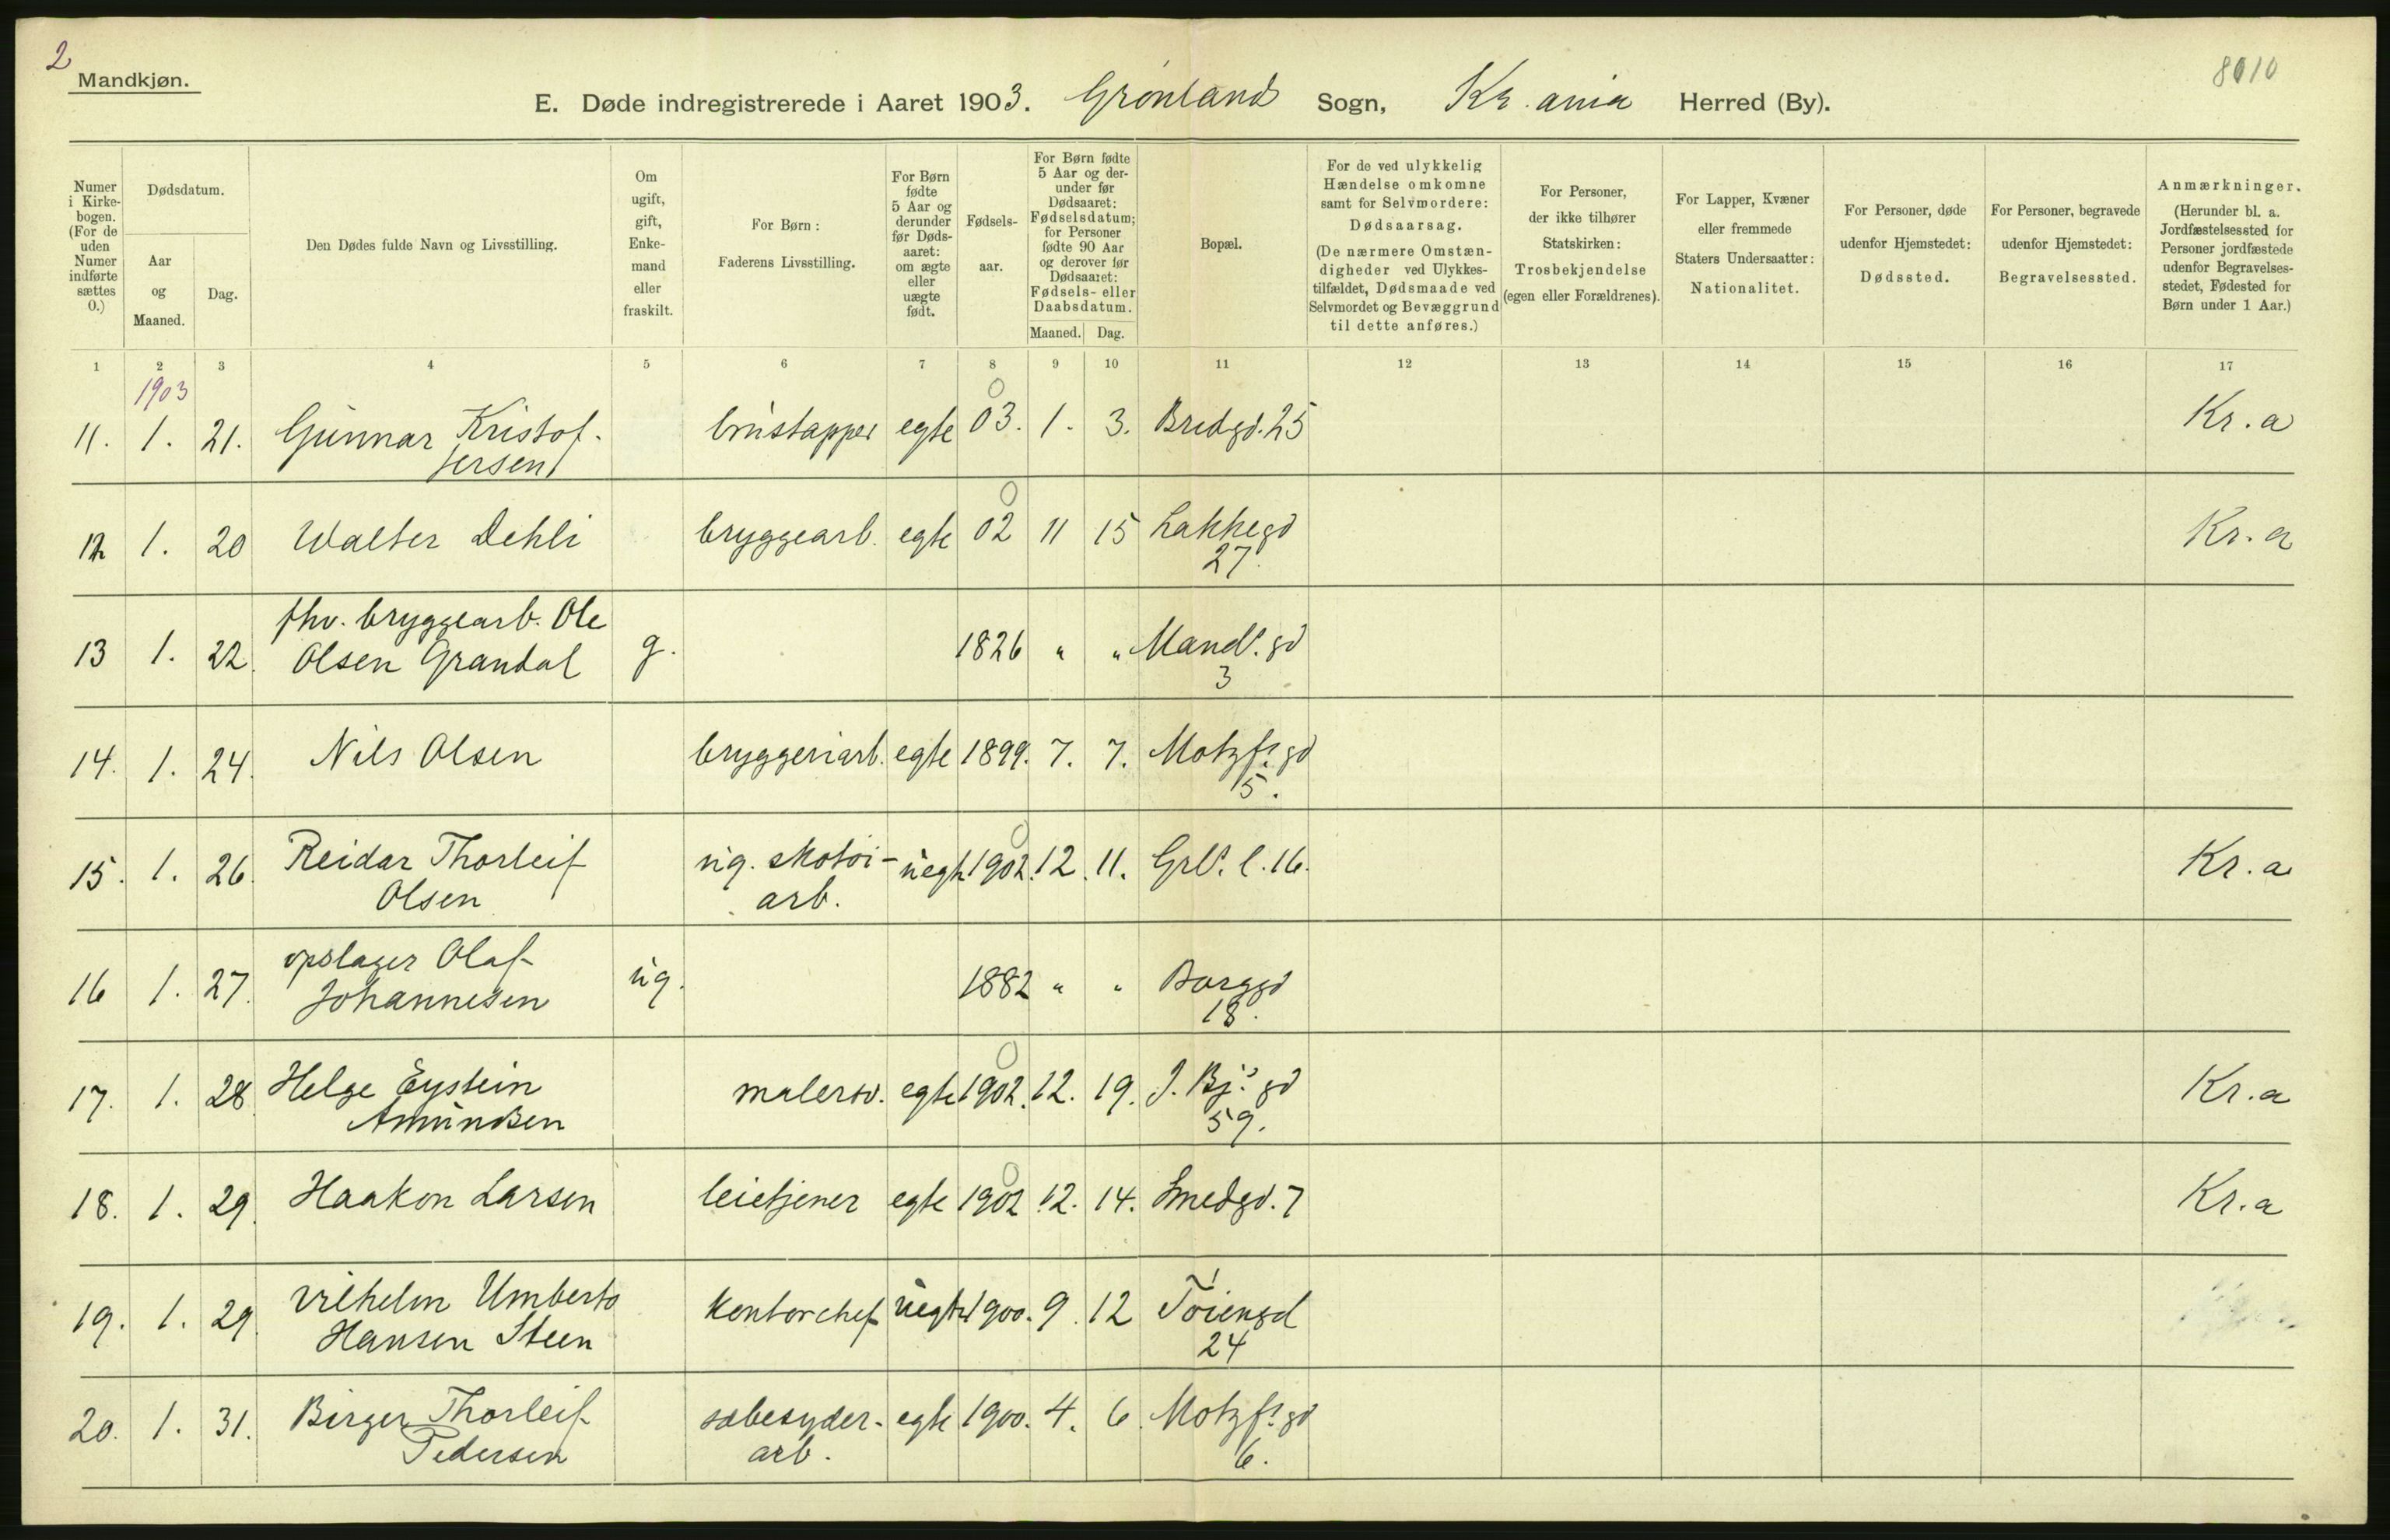 2
Mandkjøn.
8010
E. Døde indregistrerede i Aaret 1903. Grønland Sogn, Kr.ania Herred (By).
Numer i Kirkebogen. (For de uden Numer indførte sættes 0.)
Dødsdatum.
Aar og Maaned.
Dag.
Den Dødes fulde Navn og Livsstilling.
Om ugift, gift, Enkemand eller fraskilt.
For Børn: Faderens Livsstilling.
For Børn fødte 5 Aar og derunder før Dødsaaret: om ægte eller uægte født.
Fødselsaar.
For Børn fødte 5 Aar og derunder før Dødsaaret: Fødselsdatum; for Personer fødte 90 Aar og derover før Dødsaaret: Fødsels- eller Daabsdatum.
Maaned. Dag.
Bopæl.
For de ved ulykkelig Hændelse omkomne samt for Selvmordere: Dødsaarsag. (De nærmere Omstændigheder ved Ulykkestilfældet, Dødsmaade ved Selvmordet og Bevæggrund til dette anføres.)
For Personer, der ikke tilhører Statskirken: Trosbekjendelse (egen eller Forældrenes).
For Lapper, Kvæner eller fremmede Staters Undersaatter: Nationalitet.
For Personer, døde udenfor Hjemstedet: Dødssted.
For Personer, begravede udenfor Hjemstedet: Begravelsessted.
Anmærkninger. (Herunder bl. a. Jordfæstelsessted for Personer jordfæstede udenfor Begravelsesstedet, Fødested for Børn under 1 Aar.)
1 2 3 4 5 6 7 8 9 10 11 12 13 14 15 16 17
1903
11. 1. 21. Gunnar Kristof- ølustapper egte 03. 1. 3. Bredgd. 25 Kr.a
fersen
12 1. 20 Walter Dehli bryggearb. egte 02 11 15 Lakkegd Kr.a
27.
fhv. bryggearb. Ole
13 1. 22. Olsen Grandal g. 1826 " " Mandls. gd
3
14. 1. 24. Nils Olsen bryggeriarb. egte 1899. 7. 7. Motzfs. gd
5.
15. 1. 26. Reidar Thorleif ug. skotøi- uegte 1902. 12. 11. Grls. l. 16. Kr.a
Olsen arb.
opslager Olaf
16 1. 27. Johannesen ug. 1882 " " Borggd
18.
17. 1. 28 Helge Eystein malersv. egte 1902. 12. 19. J. Bjs. gd Kr.a
Amundsen 59.
18. 1. 29. Haakon Larsen leietjener egte 1902 12. 14. Smedgd. 7 Kr.a
19. 1. 29. Vilhelm Umberto kontorchef uegte 1900. 9. 12 Tøiengd
Hansen Steen 24
20. 1. 31. Birger Thorleif sæbesyder- egte 1900. 4. 6 Motzfs. gd
Pedersen arb. 6.